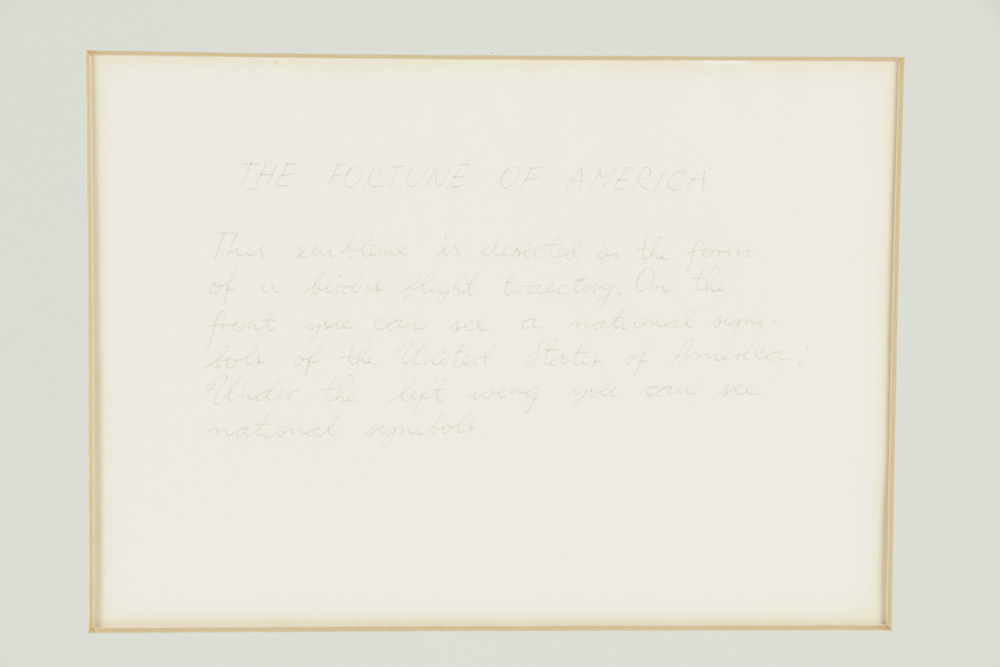 THE FORTUNE OF AMERICA
This embleme is depicted in the form
of a bird's flight traectory. On the
front you can see a national sym-
bols of the United States of America.
Under the left wing you can see
national symbols.